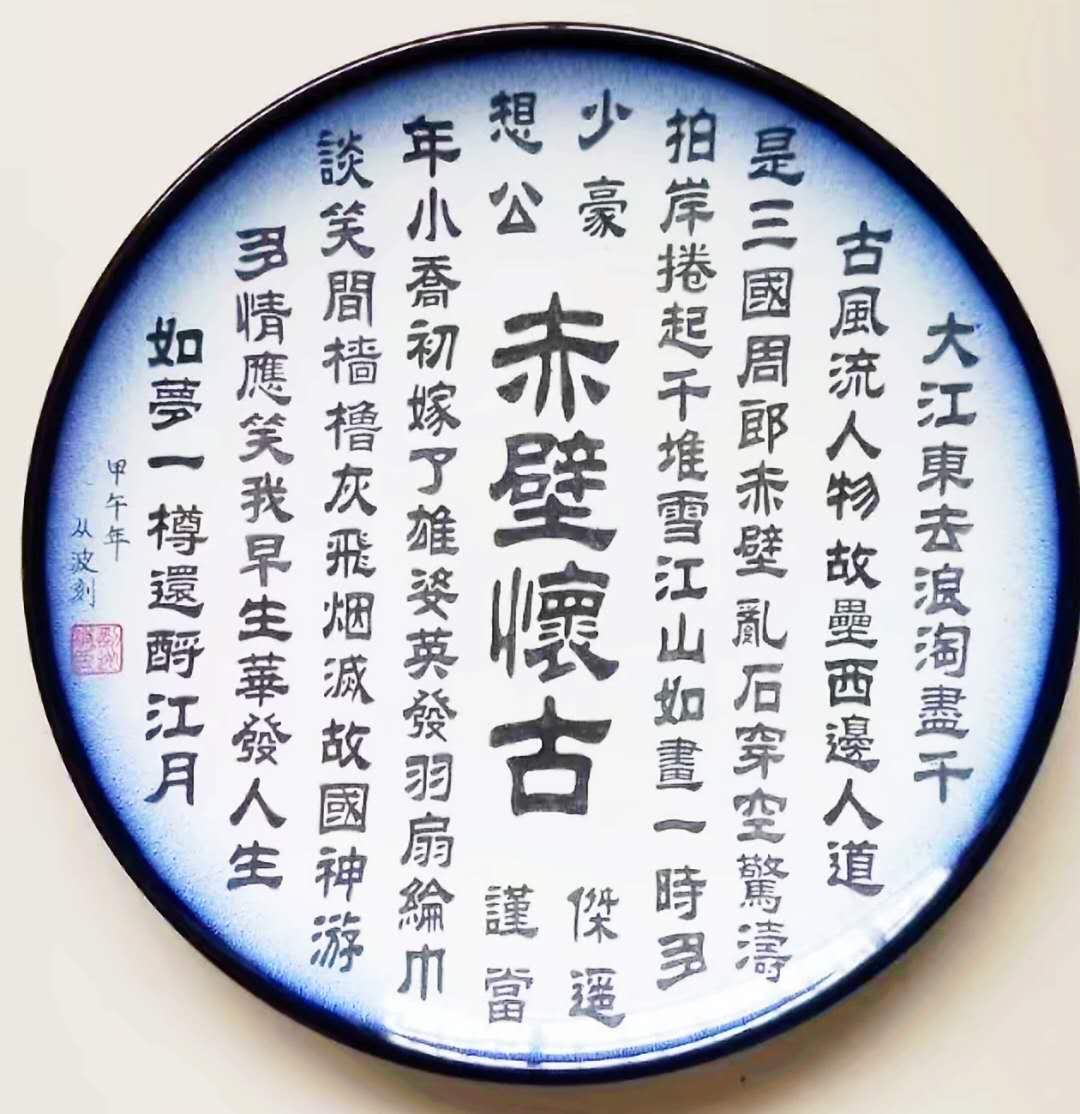 大江東去浪淘盡千
古風流人物故壘西邊人道
是三國周郎赤壁亂石穿空驚濤
拍岸捲起千堆雪江山如畫一時多
少豪
傑遥
想公
謹當
赤壁懷古
年小喬初嫁了雄姿英發羽扇綸巾
談笑間檣櫓灰飛烟滅故國神游
多情應笑我早生華發人生
如夢一樽還酹江月
甲午年
从波刻